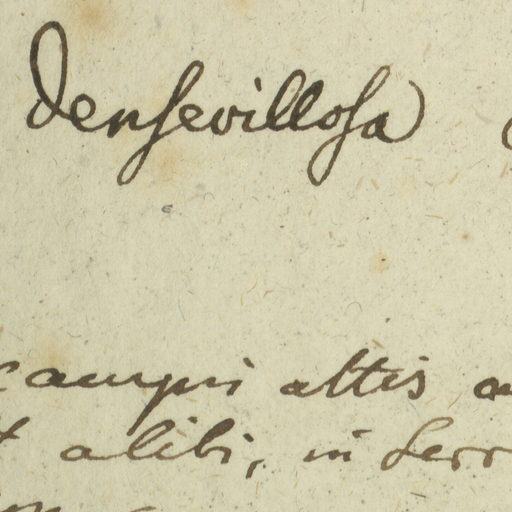 densevillosa
campis altis
alibi, in serr